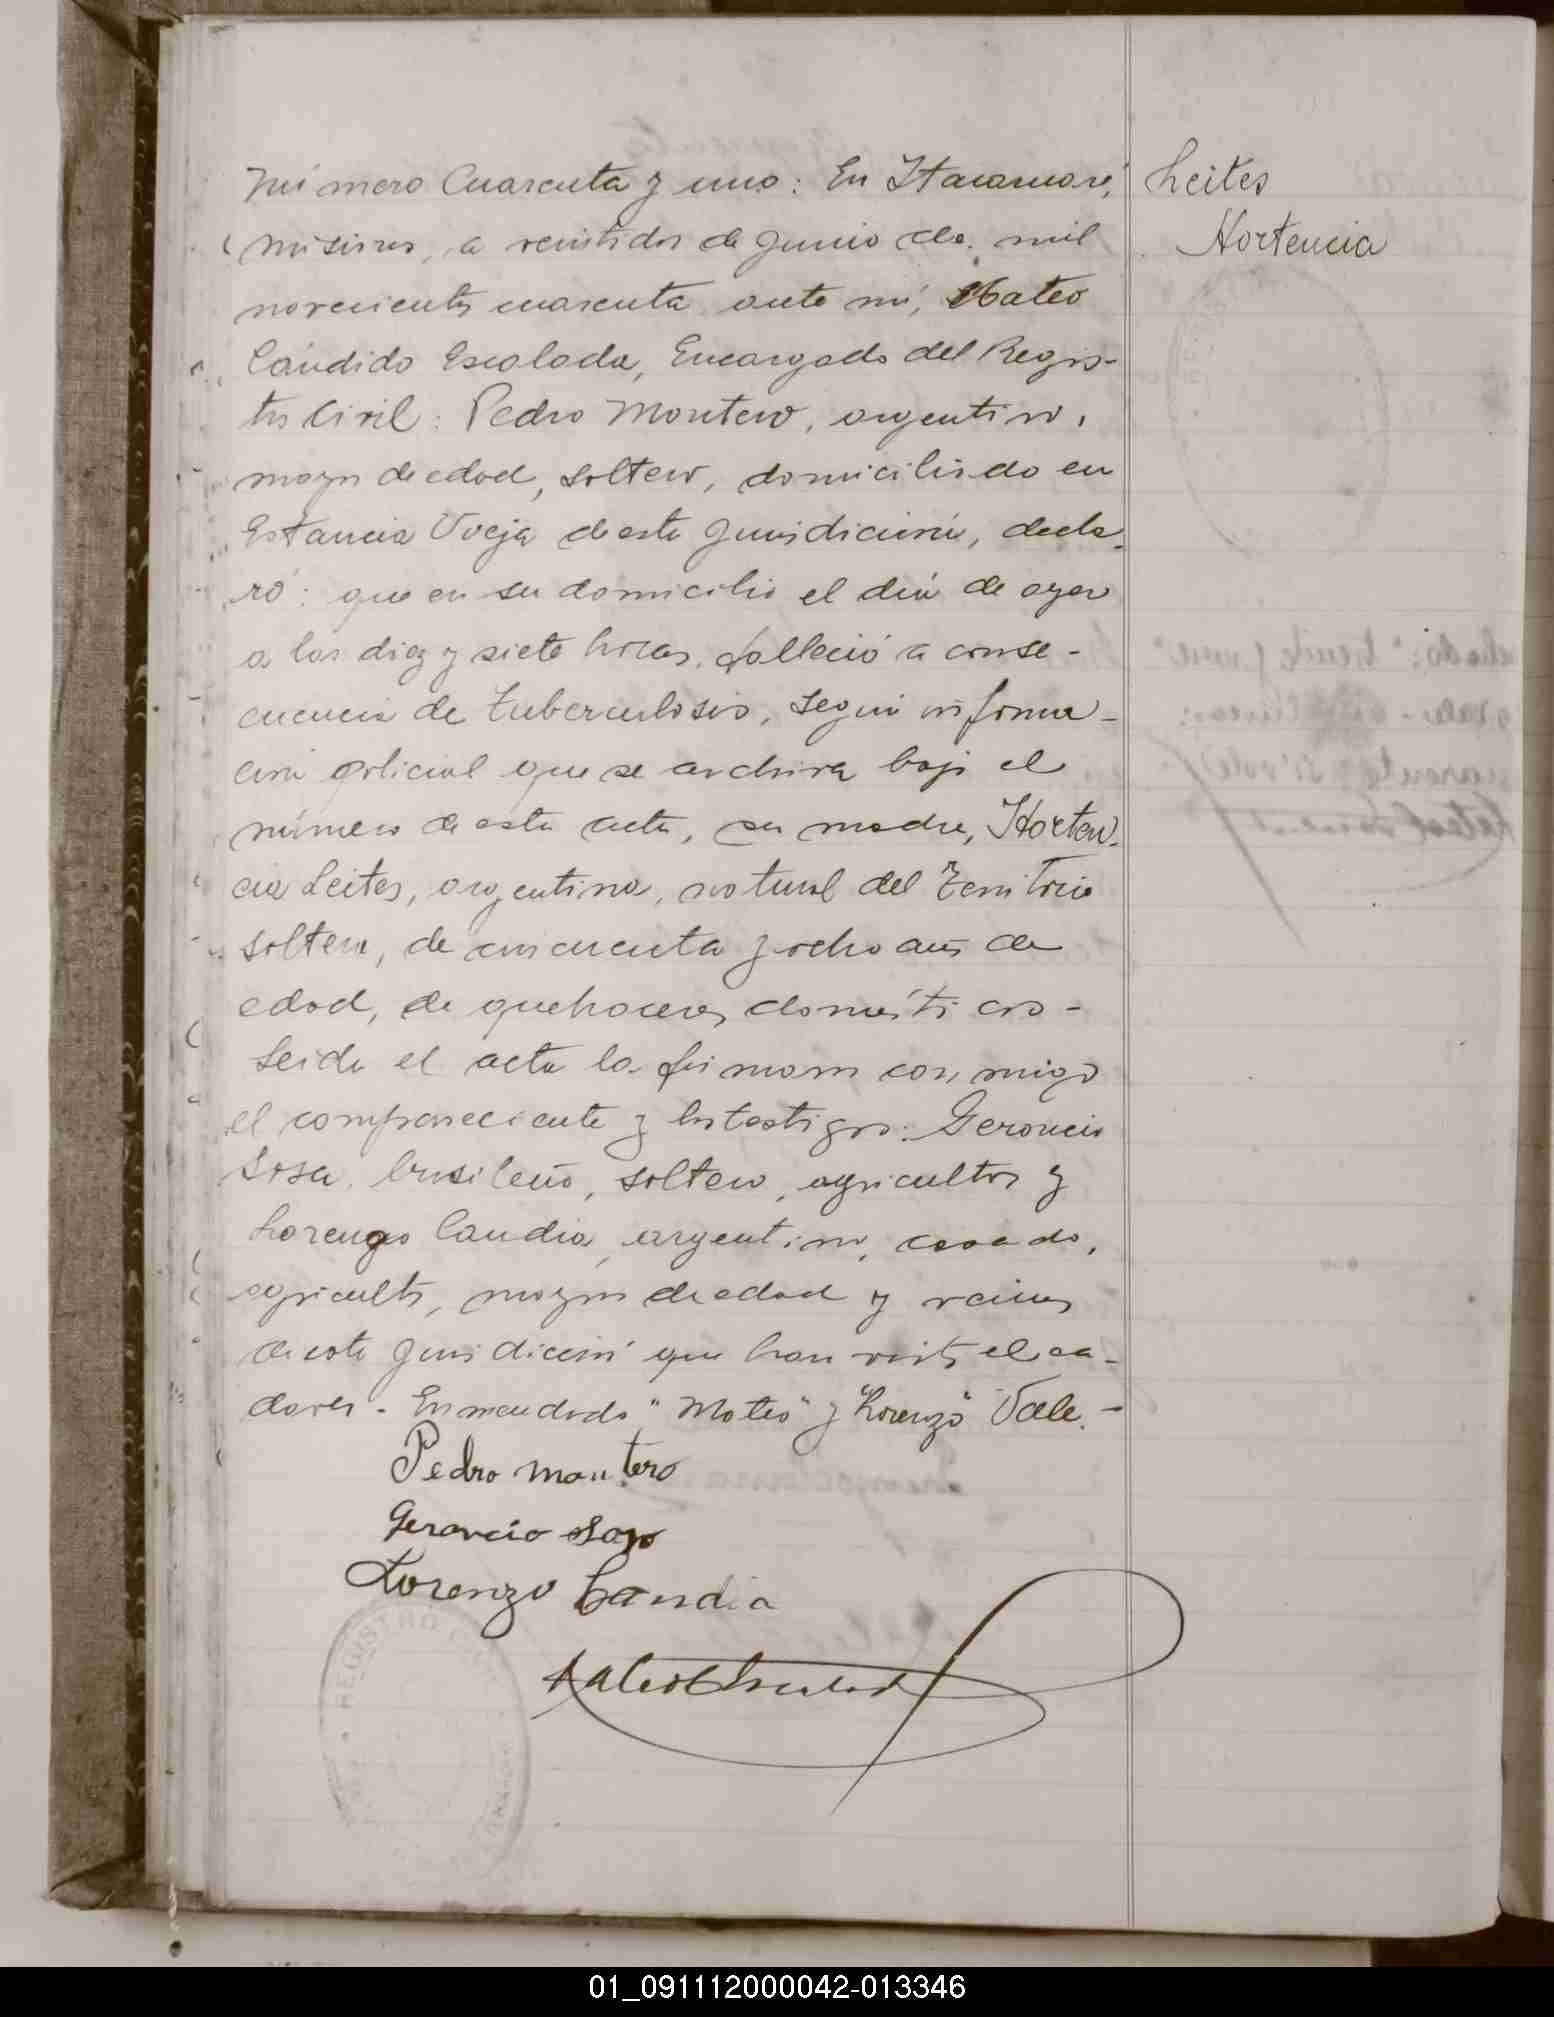 Número Cuarenta y uno: En Itacaruaré,
Misiones, a veintidos de Junio de mil
novecientos cuarenta ante mí, Mateo
Cándido Escalada, Encargado del Regis-
tro Civil: Pedro Montero, argentino,
mayor de edad, soltero, domiciliado en
Estancia Vieja de esta Jurisdicción, decla-
ró: que en su domicilio el día de ayer
a las diez y siete horas, falleció a conse-
cuencia de tuberculosis, según informa-
ción policial que se archiva bajo el
número de esta acta, su madre, Horten-
cia Leites, argentina, natural del Territorio
soltera, de cincuenta y ocho años de
edad, de quehaceres domésticos -
Leida el acta la firmam conmigo
el compareciente y los testigos: Geroncio
Sosa, brasileño, soltero, agricultor y
Lorenzo Candia, argentino, casado,
agricultor, mayores de edad y vecinos
de esta Jurisdicción que han visto el ca-
daver - Enmendado "Mateo" y "Lorenzo" Vale. -
Pedro Montero
Geroncio Sosa
Lorenzo Candia
Mateo C Escalada
Leites
Hortencia
REGISTRO
01_091112000042-013346